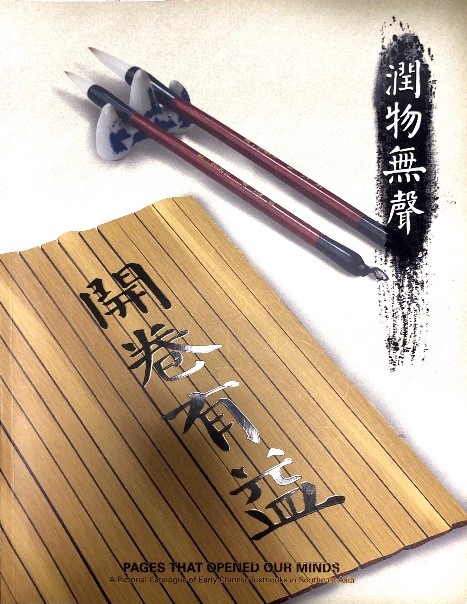 潤物無聲
開卷有益
PAGES THAT OPENED OUR MINDS
A Pictorial Catalogue of Early Chinese Textbooks in Southeast Asia